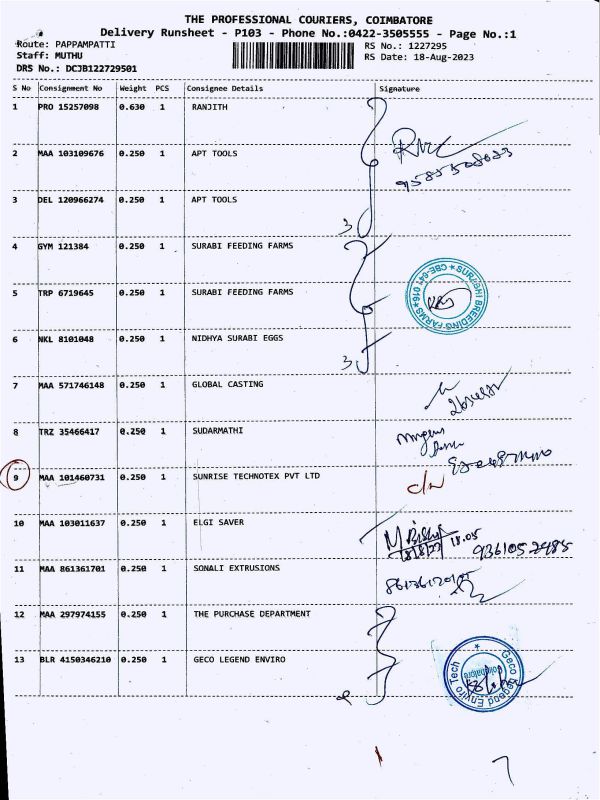 THE PROFESSIONAL COURIERS, COIMBATORE
Delivery Runsheet - P103 - Phone No.:0422-3505555 - Page No.:1
Route: PAPPAMPATTI RS No.: 1227295
Staff: MUTHU RS Date: 18-Aug-2023
DRS No.: DCJB122729501
S No Consignment No Weight PCS Consignee Details Signature
1 PRO 15257098 0.630 1 RANJITH
2 MAA 103109676 0.250 1 APT TOOLS
3 DEL 120966274 0.250 1 APT TOOLS
3
4 GYM 121384 0.250 1 SURABI FEEDING FARMS
SURABHI BREEDING FARMS
5 TRP 6719645 0.250 1 SURABI FEEDING FARMS
6 NKL 8101048 0.250 1 NIDHYA SURABI EGGS
3
7 MAA 571746148 0.250 1 GLOBAL CASTING
8 TRZ 35466417 0.250 1 SUDARMATHI
9 MAA 101460731 0.250 1 SUNRISE TECHNOTEX PVT LTD
10 MAA 103011637 0.250 1 ELGI SAVER
18/8/23 18.05 9361052485
11 MAA 861361701 0.250 1 SONALI EXTRUSIONS
12 MAA 297974155 0.250 1 THE PURCHASE DEPARTMENT
13 BLR 4150346210 0.250 1 GECO LEGEND ENVIRO
Geco Legend Enviro Tech
Coimbatore